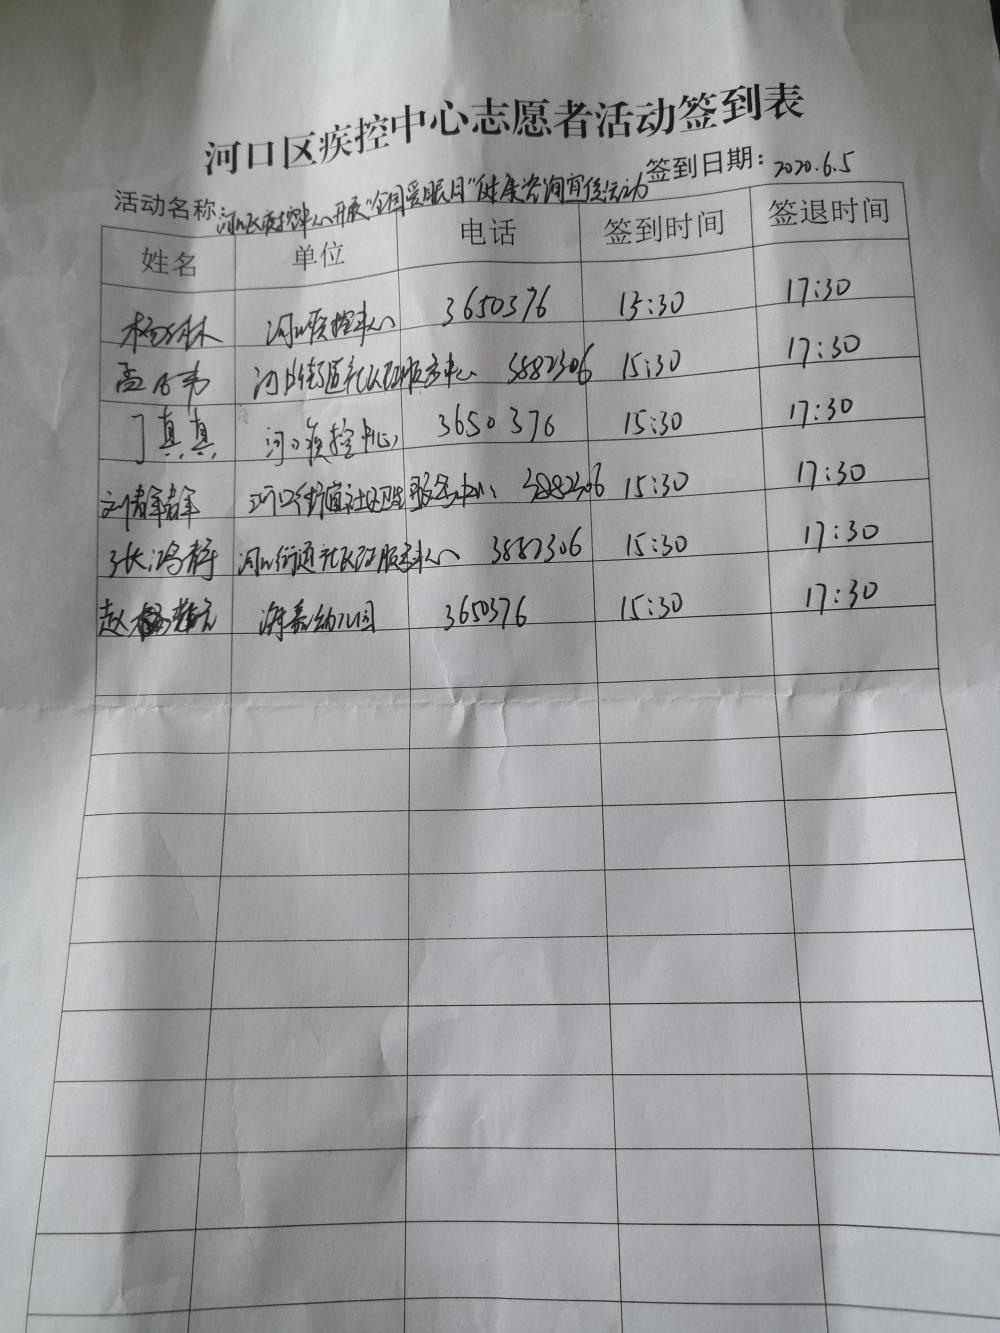 河口区疾控中心志愿者活动签到表
活动名称 河口区疾控中心开展"全国爱眼日"健康咨询宣传活动 签到日期: 2020.6.5
姓名 单位 电话 签到时间 签退时间
河口疾控中心 3650376 15:30 17:30
孟 河口街道社区卫生服务中心 3882306 15:30 17:30
丁真真 河口疾控中心 3650376 15:30 17:30
刘 河口街道社区卫生服务中心 3882306 15:30 17:30
张鸿静 河口街道社区卫生服务中心 3882306 15:30 17:30
赵 幼儿园 3650376 15:30 17:30